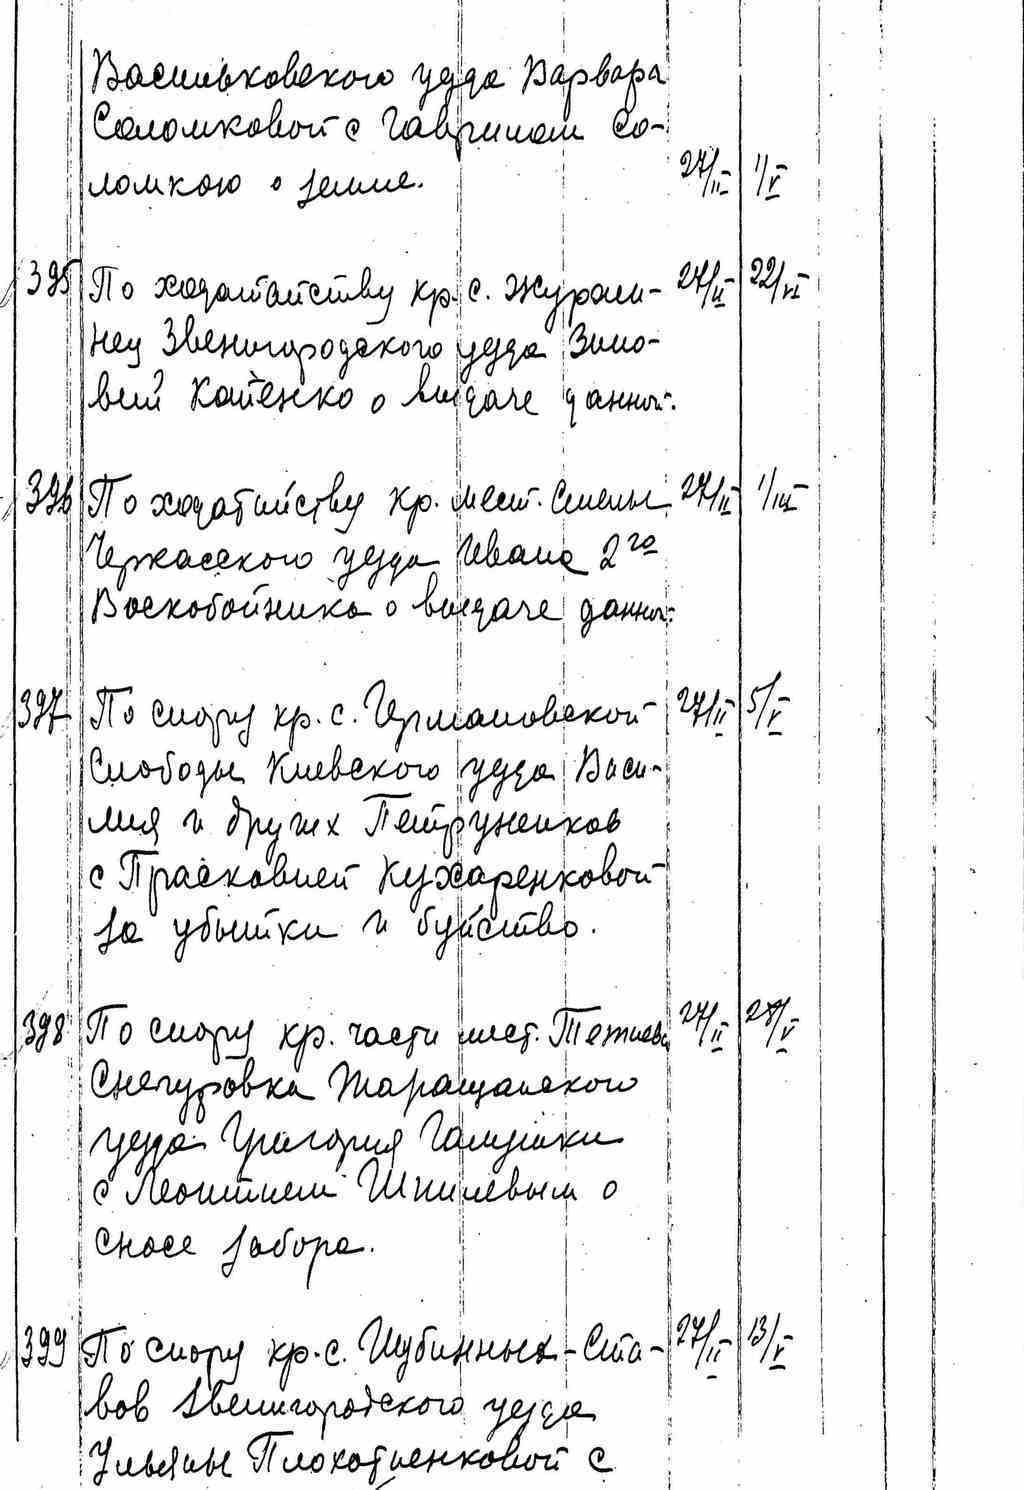 Васильковского уезда Варвары
Соломковой с Гавриилом Со-
ломкою о земле. 27/II 1/V
395 По ходатайству кр. с. Журжи-
нец Звенигородского уезда Зино-
вий Коваленко о выдаче данной. 27/II 22/VI
396 По ходатайству кр. мест. Смелы 27/II 1/III
Черкасского уезда Ивана 2го
Воскобойника о выдаче данной.
397 По спору кр. с. Германовской 27/II 5/V
Слободы Киевского уезда Васи-
лия и других Петруненков
с Прасковией Кухаренковой
за убытки и буйство.
398 По спору кр. части мест. Тетиева 27/II 28/V
Снегуровка Таращанского
уезда Григория Галушки
с Леонтием Шпилевым о
сносе забора.
399 По спору кр. с. Шубинных-Ста- 27/II 13/V
вов Звенигородского уезда
Ульяны Плохотненковой с